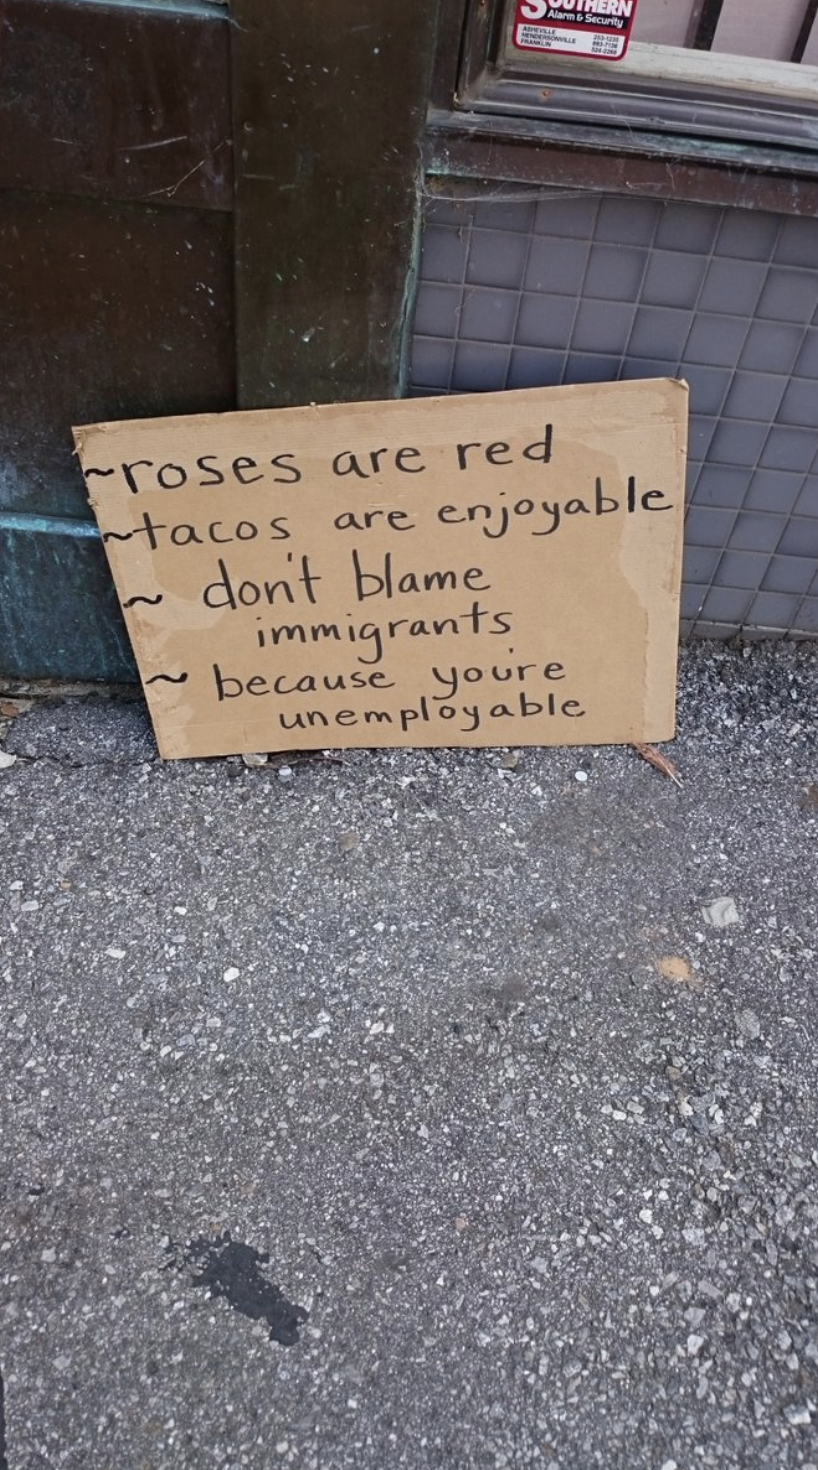 SOUTHERN
Alarm & Security
ASHEVILLE 253-1235
HENDERSONVILLE 693-7136
FRANKLIN 524-2266
~roses are red
~tacos are enjoyable
~ don't blame
immigrants
~ because you're
unemployable